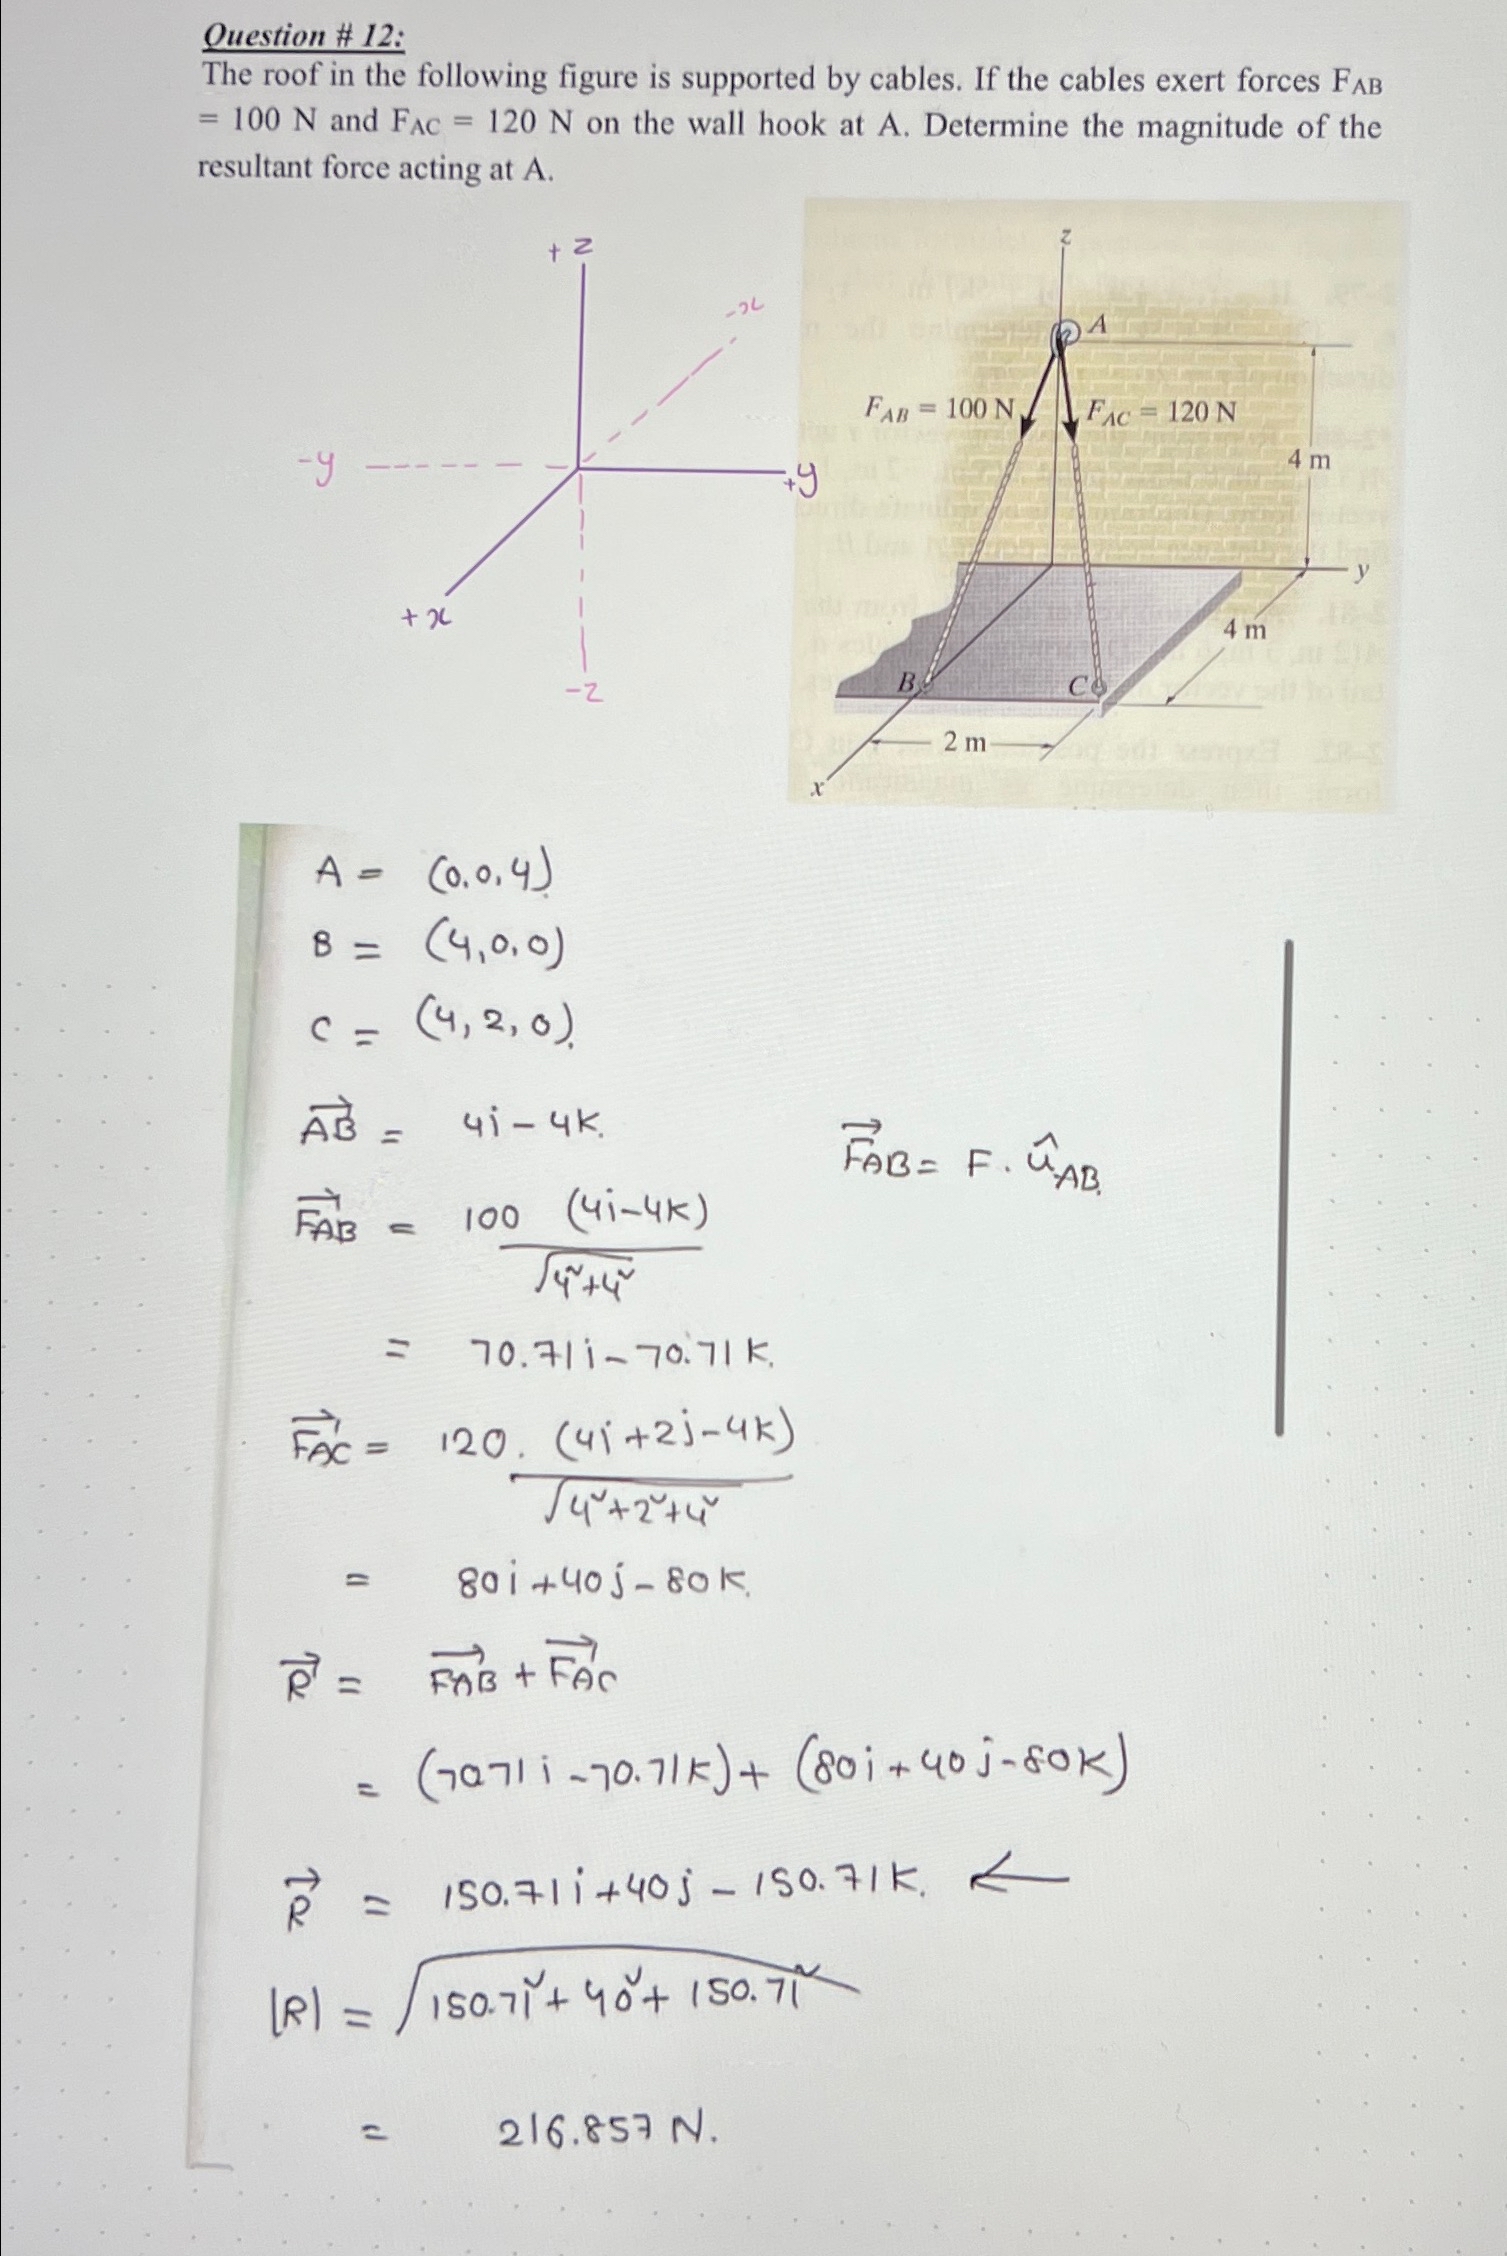 Question # 12:
The roof in the following figure is supported by cables. If the cables exert forces FAB
= 100 N and FAC = 120 N on the wall hook at A. Determine the magnitude of the
resultant force acting at A.
+ z
-x
-y
+y
+ x
-z
z
A
FAB = 100 N
FAC = 120 N
4 m
y
4 m
B
C
2 m
x
A = (0,0,4)
B = (4,0,0)
C = (4,2,0)
AB = 4i - 4k.
FAB = F . ûAB.
FAB = 100 (4i-4k)
√4²+4²
= 70.71i - 70.71k.
FAC = 120. (4i+2j-4k)
√4²+2²+4²
= 80i+40j-80k.
R = FAB + FAC
= (70.71i-70.71k) + (80i+40j-80k)
R = 150.71i+40j-150.71k. ←
|R| = √150.71²+40²+150.71²
= 216.857 N.